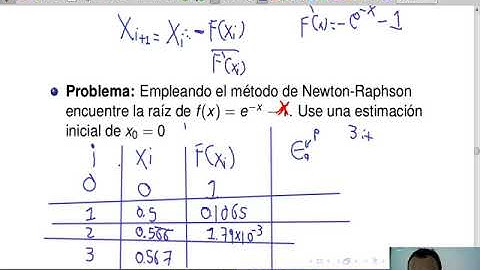 Xi+1 = Xi - F(Xi) / F'(Xi)
F'(x) = -e^-x - 1
Problema: Empleando el método de Newton-Raphson
encuentre la raíz de f(x) = e^-x - x. Use una estimación
inicial de x0 = 0
i Xi F(Xi) 3 it
0 0 1
1 0.5 0.1065
2 0.566 1.79x10^-3
3 0.567